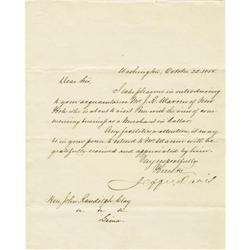 Washington, October 22. 1855.
Dear Sir,
I take pleasure in introducing
to your acquaintance Mr. J. A. Maurin of New
York who is about to visit Peru with the view of com-
mencing business as a Merchant in Callao.
Any facilities, attention, it may
be in your power to extend to Mr. Maurin will be
gratefully received and appreciated by him.
Very respectfully
Jefferson Davis
Hon. John Randolph Clay
Lima